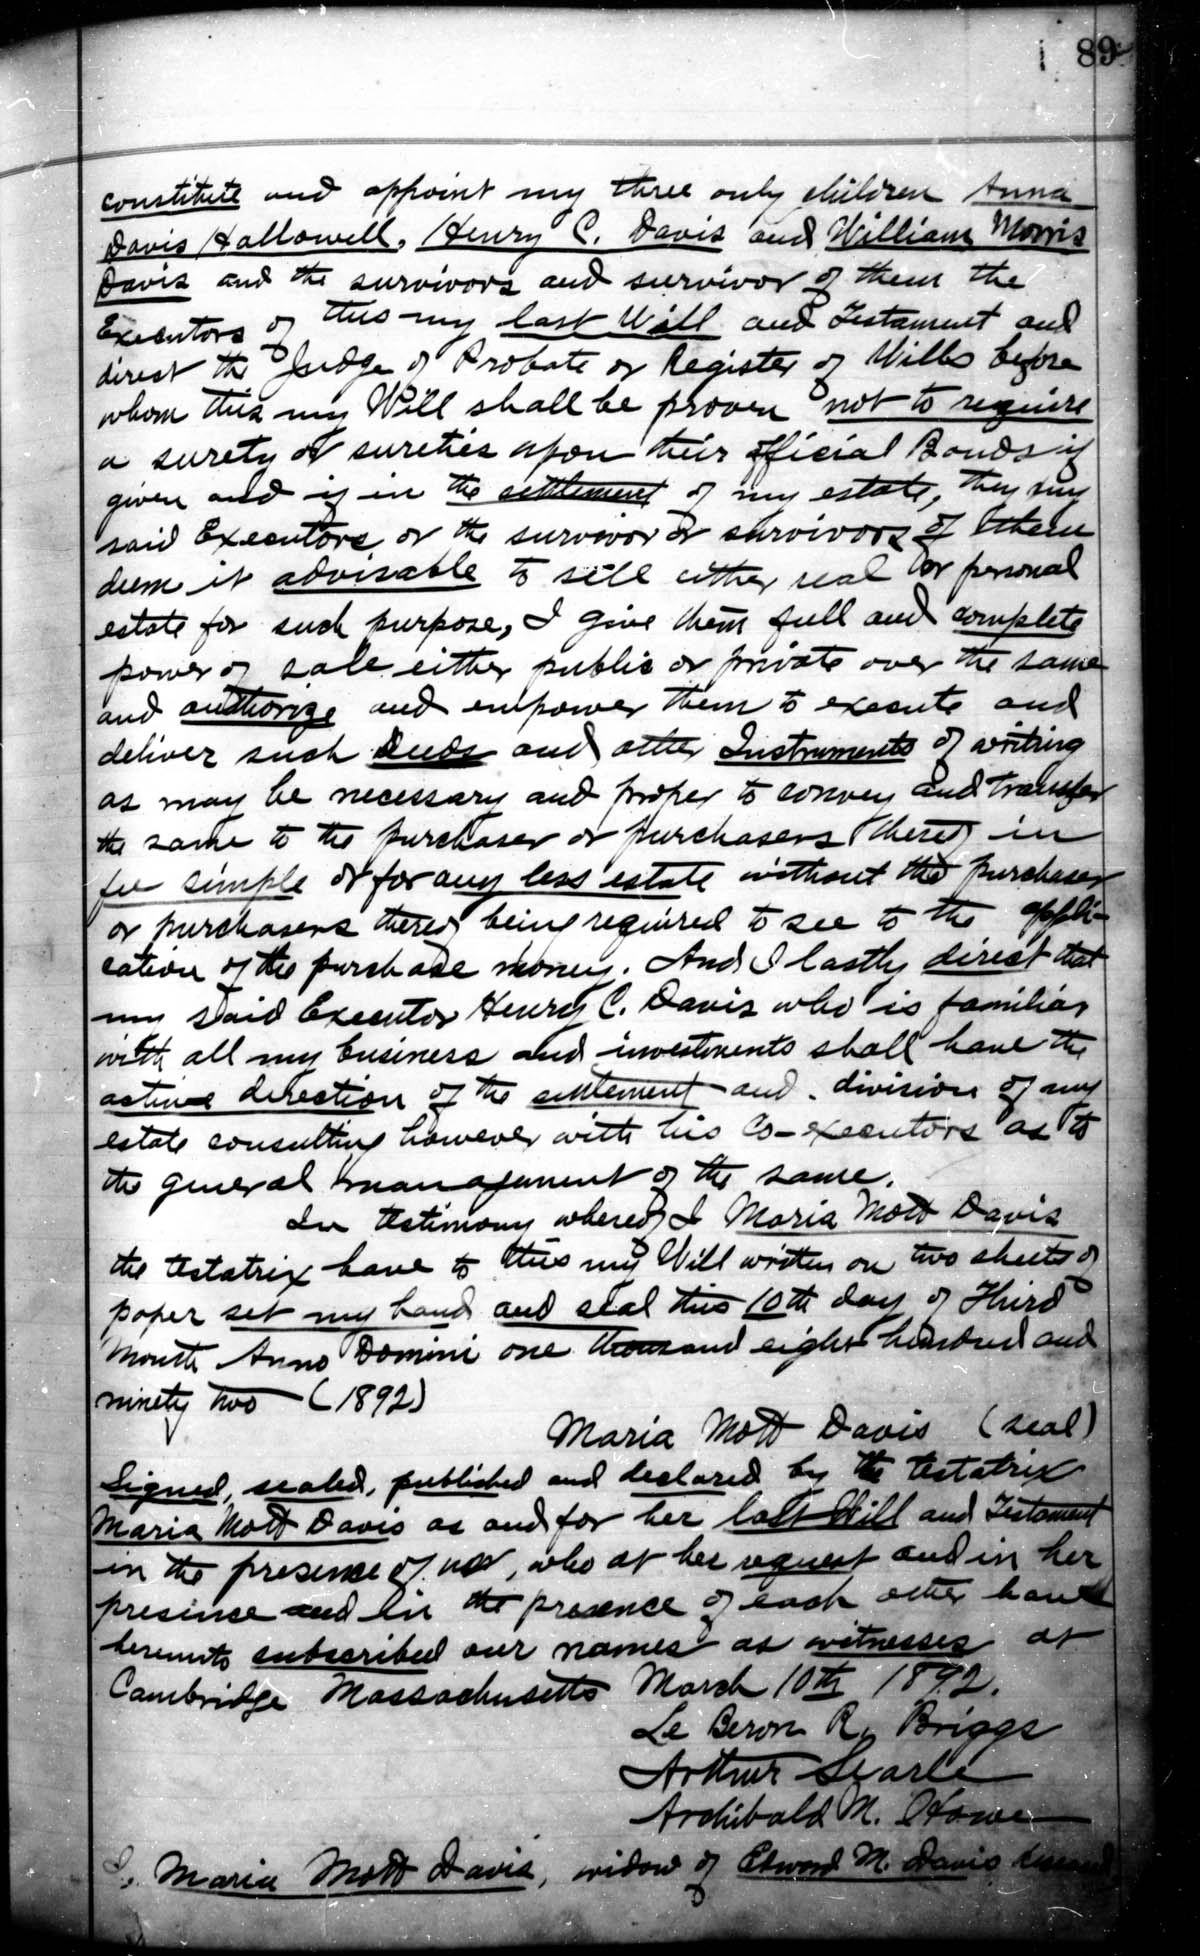 89
constitute and appoint my three only children Anna
Davis Hallowell, Henry C. Davis and William Morris
Davis and the survivors and survivor of them the
Executors of this my last Will and Testament and
direct the Judge of Probate or Register of Wills before
whom this my Will shall be proven not to require
a surety or sureties upon their official Bonds if
given and if in the settlement of my estate, they my
said Executors or the survivor or survivors of them
deem it advisable to sell either real or personal
estate for such purpose, I give them full and complete
power of sale either public or private over the same
and authorize and empower them to execute and
deliver such Deeds and other Instruments of writing
as may be necessary and proper to convey and transfer
the same to the purchaser or purchasers thereof in
fee simple or for any less estate without the purchaser
or purchasers thereof being required to see to the appli-
cation of the purchase money. And I lastly direct that
my said Executor Henry C. Davis who is familiar
with all my business and investments shall have the
active direction of the settlement and division of my
estate consulting however with his Co-executors as to
the general management of the same.
In testimony whereof I Maria Mott Davis
the testatrix have to this my Will written on two sheets of
paper set my hand and seal this 10th day of Third
Month Anno Domini one thousand eight hundred and
ninety two (1892)
Maria Mott Davis (seal)
Signed, sealed, published and declared by the testatrix
Maria Mott Davis as and for her last Will and Testament
in the presence of us, who at her request and in her
presence and in the presence of each other have
hereunto subscribed our names as witnesses at
Cambridge Massachusetts March 10th 1892.
Le Beron R. Briggs
Arthur Searle
Archibald M. Howe
I, Maria Mott Davis, widow of Edward M. Davis deceased